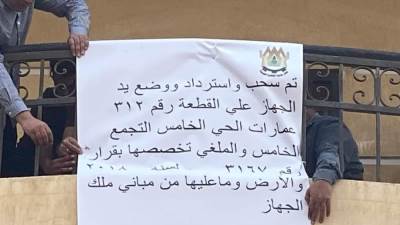 تم سحب واسترداد ووضع يد
الجهاز علي القطعة رقم ٣١٢
عمارات الحي الخامس التجمع
الخامس والملغي تخصصها بقرار
رقم ٣١٦٧ لسنة ٢٠١٨
والارض وماعليها من مباني ملك
الجهاز